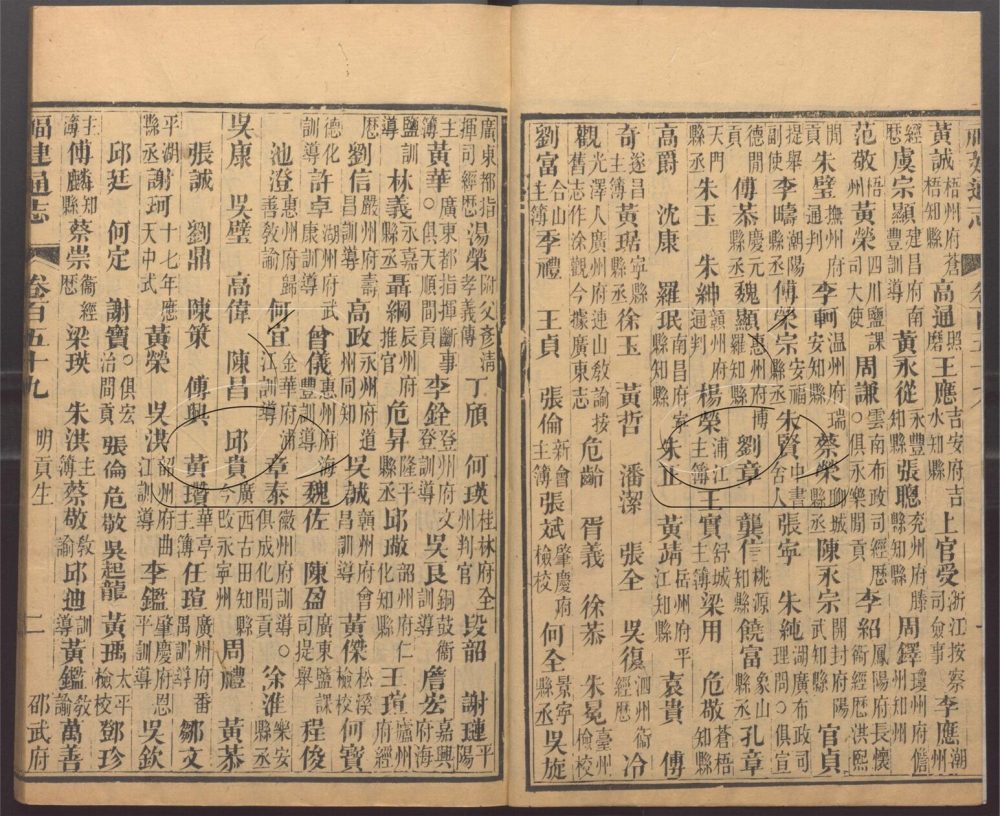 黃誠梧州府蒼梧知縣 高通照磨 王應吉安府吉水知縣 上官受浙江按察司僉事 李應潮州
經歷 虞宗顯建昌府南豐訓導 黃永從永豐知縣 張聰兗州府滕縣知縣 周鐸瓊州府儋州知州
范敬梧州 黃榮四川鹽課司大使 周謙雲南布政司經歷○俱永樂間貢 李紹鳳陽府長懷衞經歷洪熙
間貢 朱璧撫州府通判 李軻溫州府瑞安知縣 蔡榮聊城縣丞 陳永宗開封府陽武知縣 官貞
提舉副使 李疇潮陽縣丞 傅榮宗安福縣丞 朱賢中書舍人 張寧 朱純湖廣布政司理問○俱宣
德間貢 傅恭慶元縣丞 魏顯惠州府博羅知縣 劉章 龔信桃源知縣 饒富象山 孔章
天門縣丞 朱玉 朱紳贛州府通判 楊榮浦江主簿 王實舒城主簿 梁用 危敬蒼梧知縣
高爵 沈康 羅珉南昌府寧縣知縣 朱正 黃靖岳州府平江知縣 袁貴 傅
奇遂昌主簿 黃琚寧縣縣丞 徐玉 黃哲 潘潔 張全 吳復泗州衞經歷 冷
觀光澤人廣州府連山教諭按舊志作涂觀今據廣東志 危齡 胥義 徐恭 朱冕臺州檢校
劉富合山主簿 季禮 王貞 張倫新會主簿 張斌肇慶府檢校 何全景寧縣丞 吳旋
廣東都指揮司經歷 湯榮附父彥清孝義傳 丁頎 何瑛桂林府全州判官 段韶 謝璉平陽
主簿 黃華廣東都指揮斷事○俱天順間貢 李銓登州府文登訓導 吳艮銅鼓衞訓導 詹宏嘉興府海
鹽訓導 林義永嘉縣丞 聶綱長州府推官 危昇隆平縣丞 邱璥韶州府仁化知縣 王瑄廬州府經
歷 劉信嚴州府壽昌訓導 高政永州府道州同知 吳誠贛州府會昌訓導 黃傑松溪檢校 何寶
德化訓導 許卓湖州府武康訓導 曾儀惠州府海豐訓導 魏佐 陳盈廣東鹽課司提舉 程俊
池澄惠州府歸善教諭 何宜金華府浦江訓導 章泰徽州府訓導○俱成化間貢 徐淮樂安縣丞 黃恭
吳康 吳璧 高偉 陳昌 邱貴廣西古田知縣今改永寧州 周禮
張誠 劉鼎 陳策 傅興 黃瓚華亭主簿 任瑄廣州府番禺訓導 鄒文
平湖縣丞 謝珂十七年應天中式 黃榮 吳洪韶州府曲江訓導 李鑑肇慶府恩平訓導 吳欽
邱廷 何定 謝寶○俱宏治間貢 張倫 危敬 吳起龍 黃瑀太平檢校 鄧珍
主簿 傅麟知縣 蔡崇衞經歷 梁瑛 朱洪主簿 蔡敬教諭 邱迪訓導 黃鑑教諭 萬善
福建通志 卷百五十九 明貢生 二 邵武府